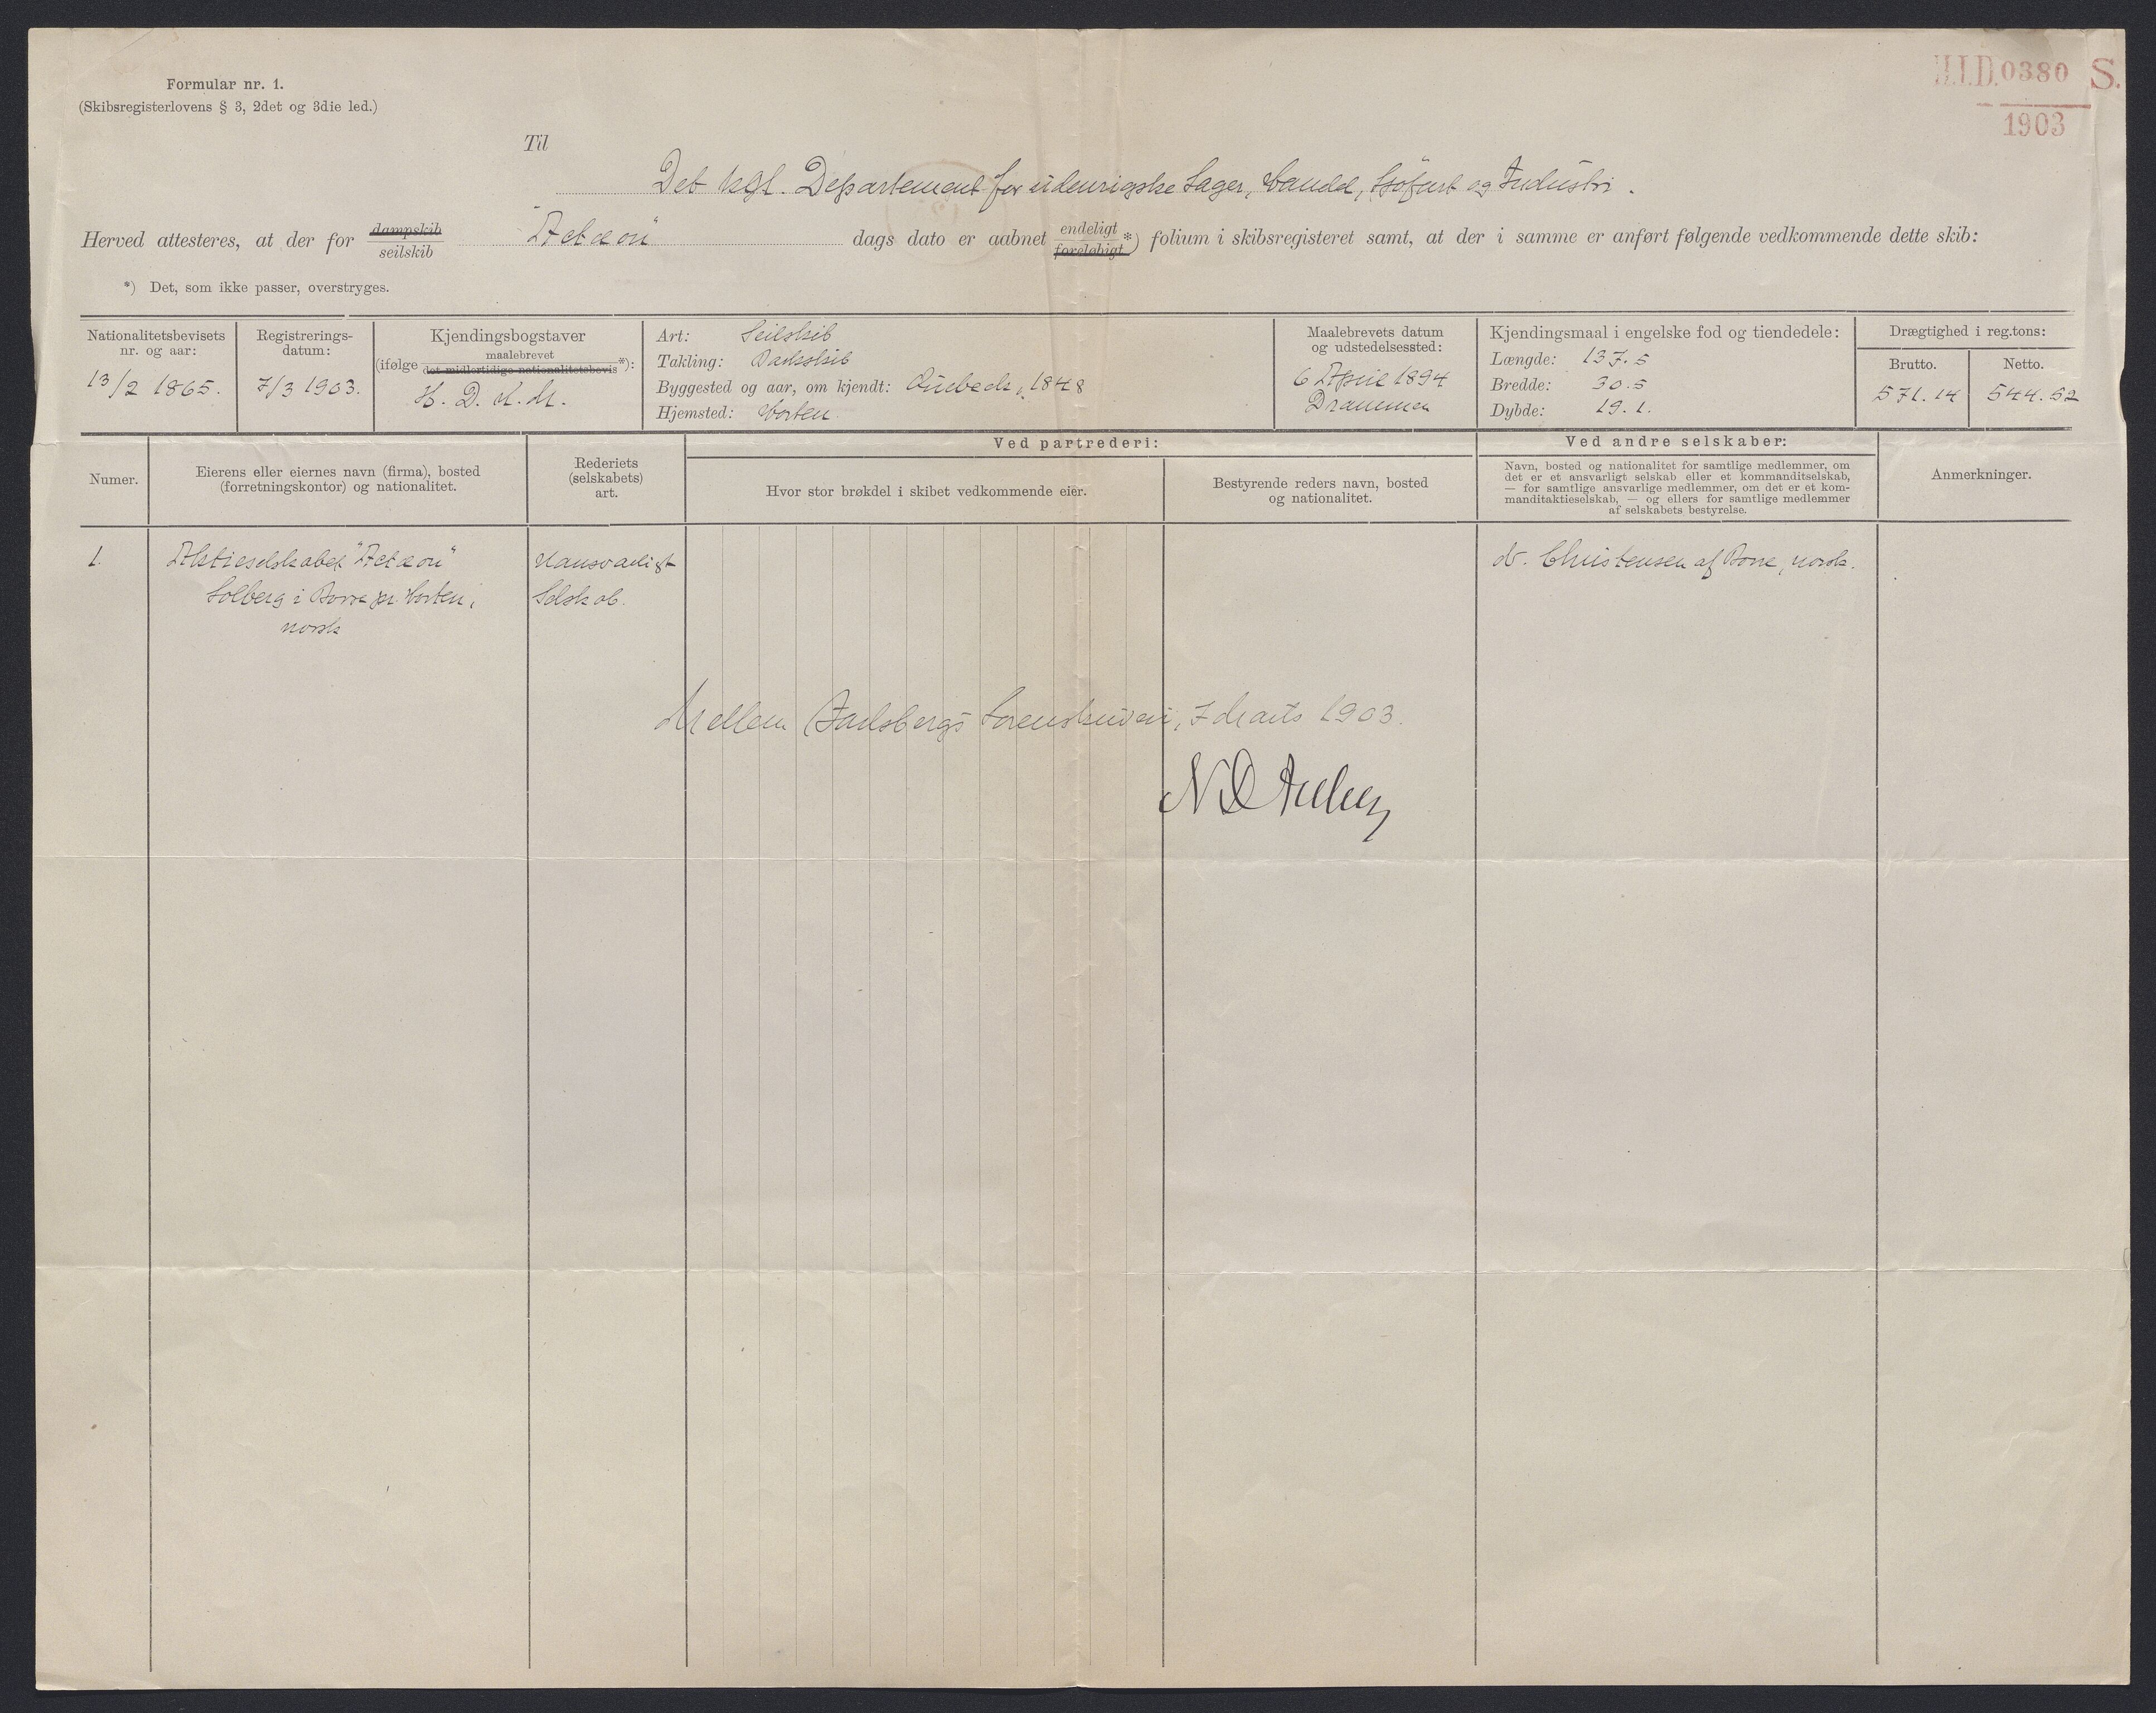 Formular nr. 1.
(Skibsregisterlovens § 3, 2det og 3die led.)
H.I.D. 0380 S.
1903
Til
Det kgl. Departement for udenrigske Sager, Handel, Söfart og Industri.
Herved attesteres, at der for dampskib seilskib "Actæon" dags dato er aabnet endeligt foreløbigt *) folium i skibsregisteret samt, at der i samme er anført følgende vedkommende dette skib:
*) Det, som ikke passer, overstryges.
Nationalitetsbevisets nr. og aar:
13/2 1865.
Registrerings-datum:
7/3 1903.
Kjendingsbogstaver
(ifølge maalebrevet det midlertidige nationalitetsbevis *):
H. D. M.
Art: Seilskib
Takling: Barkskib
Byggested og aar, om kjendt: Quebeck, 1848
Hjemsted: Horten
Maalebrevets datum
og udstedelsessted:
6 April 1894
Drammen
Kjendingsmaal i engelske fod og tiendedele:
Længde: 137.5
Bredde: 30.5
Dybde: 19.1.
Drægtighed i reg.tons:
Brutto.
571.14
Netto.
544.52
Numer.
Eierens eller eiernes navn (firma), bosted
(forretningskontor) og nationalitet.
Rederiets
(selskabets)
art.
Ved partrederi:
Hvor stor brøkdel i skibet vedkommende eier.
Bestyrende reders navn, bosted
og nationalitet.
Ved andre selskaber:
Navn, bosted og nationalitet for samtlige medlemmer, om
det er et ansvarligt selskab eller et kommanditselskab,
— for samtlige ansvarlige medlemmer, om det er et kom-
manditaktieselskab, — og ellers for samtlige medlemmer
af selskabets bestyrelse.
Anmerkninger.
1.
Aktieselskabet "Actæon"
Solberg i Borre pr. Horten,
norsk
Uansvarligt
Selskab.
Christensen af Borre, norsk.
Mellem Jarlsbergs Sorenskriveri, 7 Marts 1903.